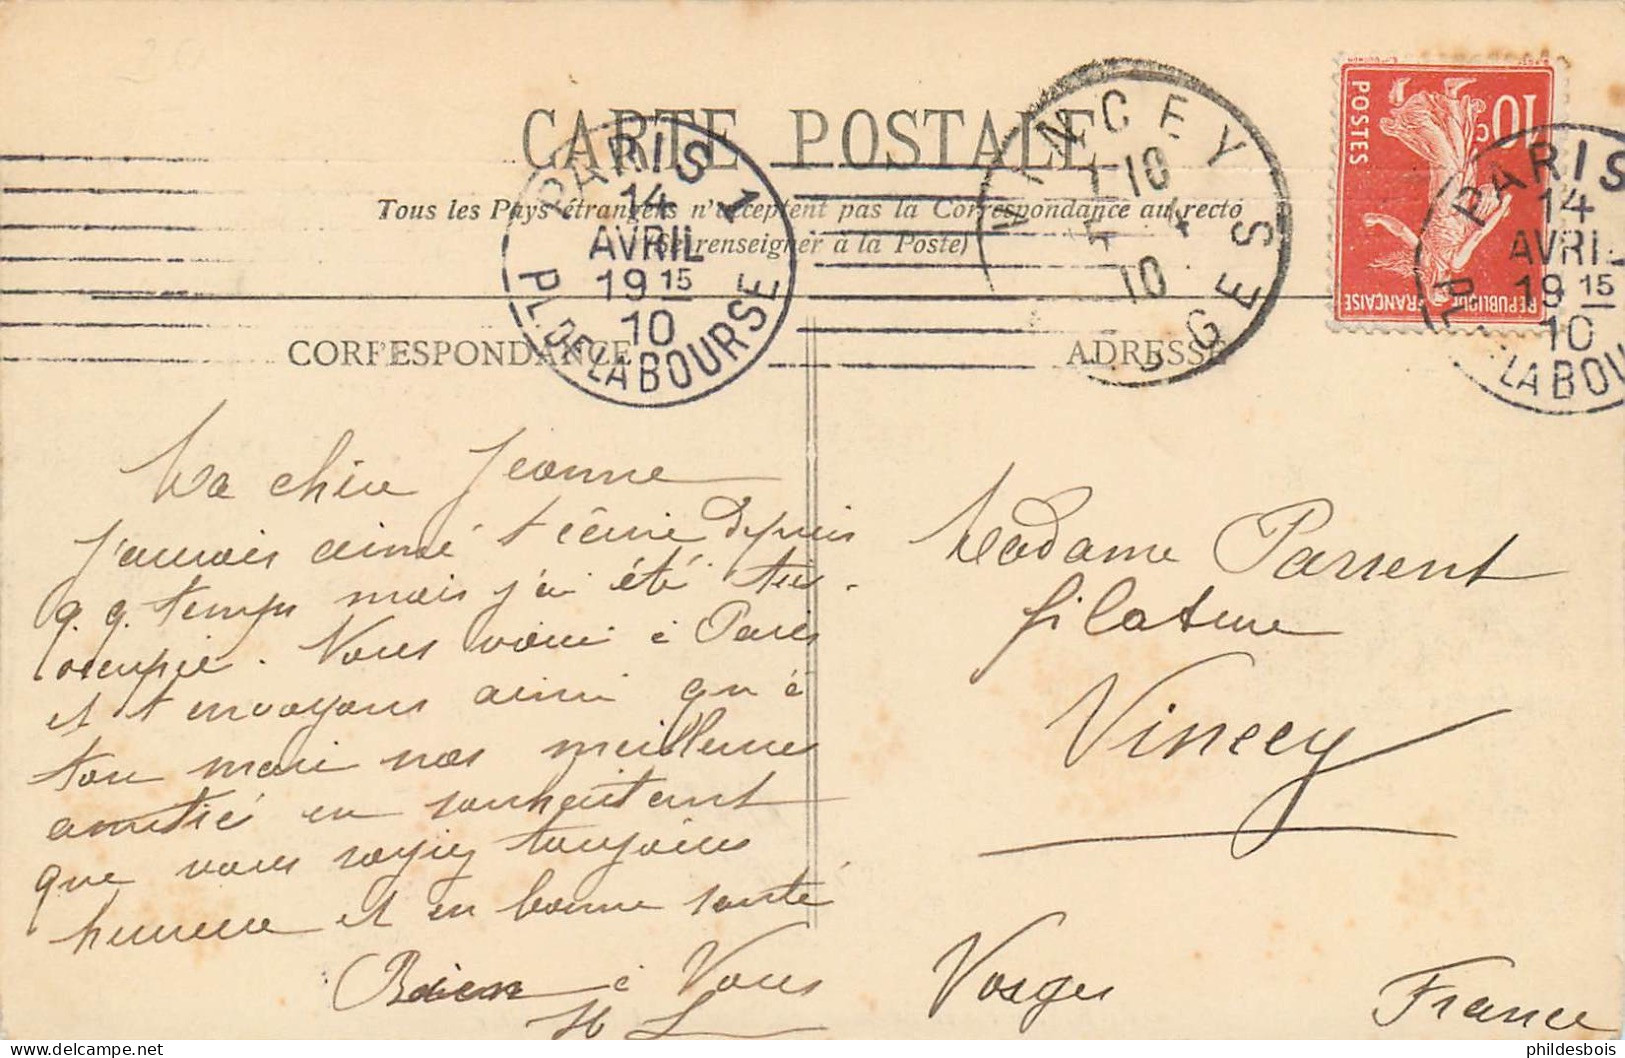 CARTE POSTALE
Tous les Pays étrangers n'acceptent pas la Correspondance au recto
(Se renseigner à la Poste)
CORRESPONDANCE
ADRESSE
PARIS 1
14
AVRIL
19 15
10
PL. DE LA BOURSE
VINCEY
1 10
15 4
10
VOSGES
10 c
POSTES
REPUBLIQUE FRANÇAISE
PARIS
14
AVRIL
19 15
10
PL. LA BOU
Ma chère Jeanne
J'aurais aimé t'écrire depuis
q.q. temps mais j'ai été très
occupée. Nous voici à Paris
et t'envoyons ainsi qu'à
ton mari nos meilleures
amitiés en souhaitant
que vous soyiez toujours
heureux et en bonne santé
Bien à Vous
H L
Madame Parrent
filature
Vincey
Vosges
France
phildesbois